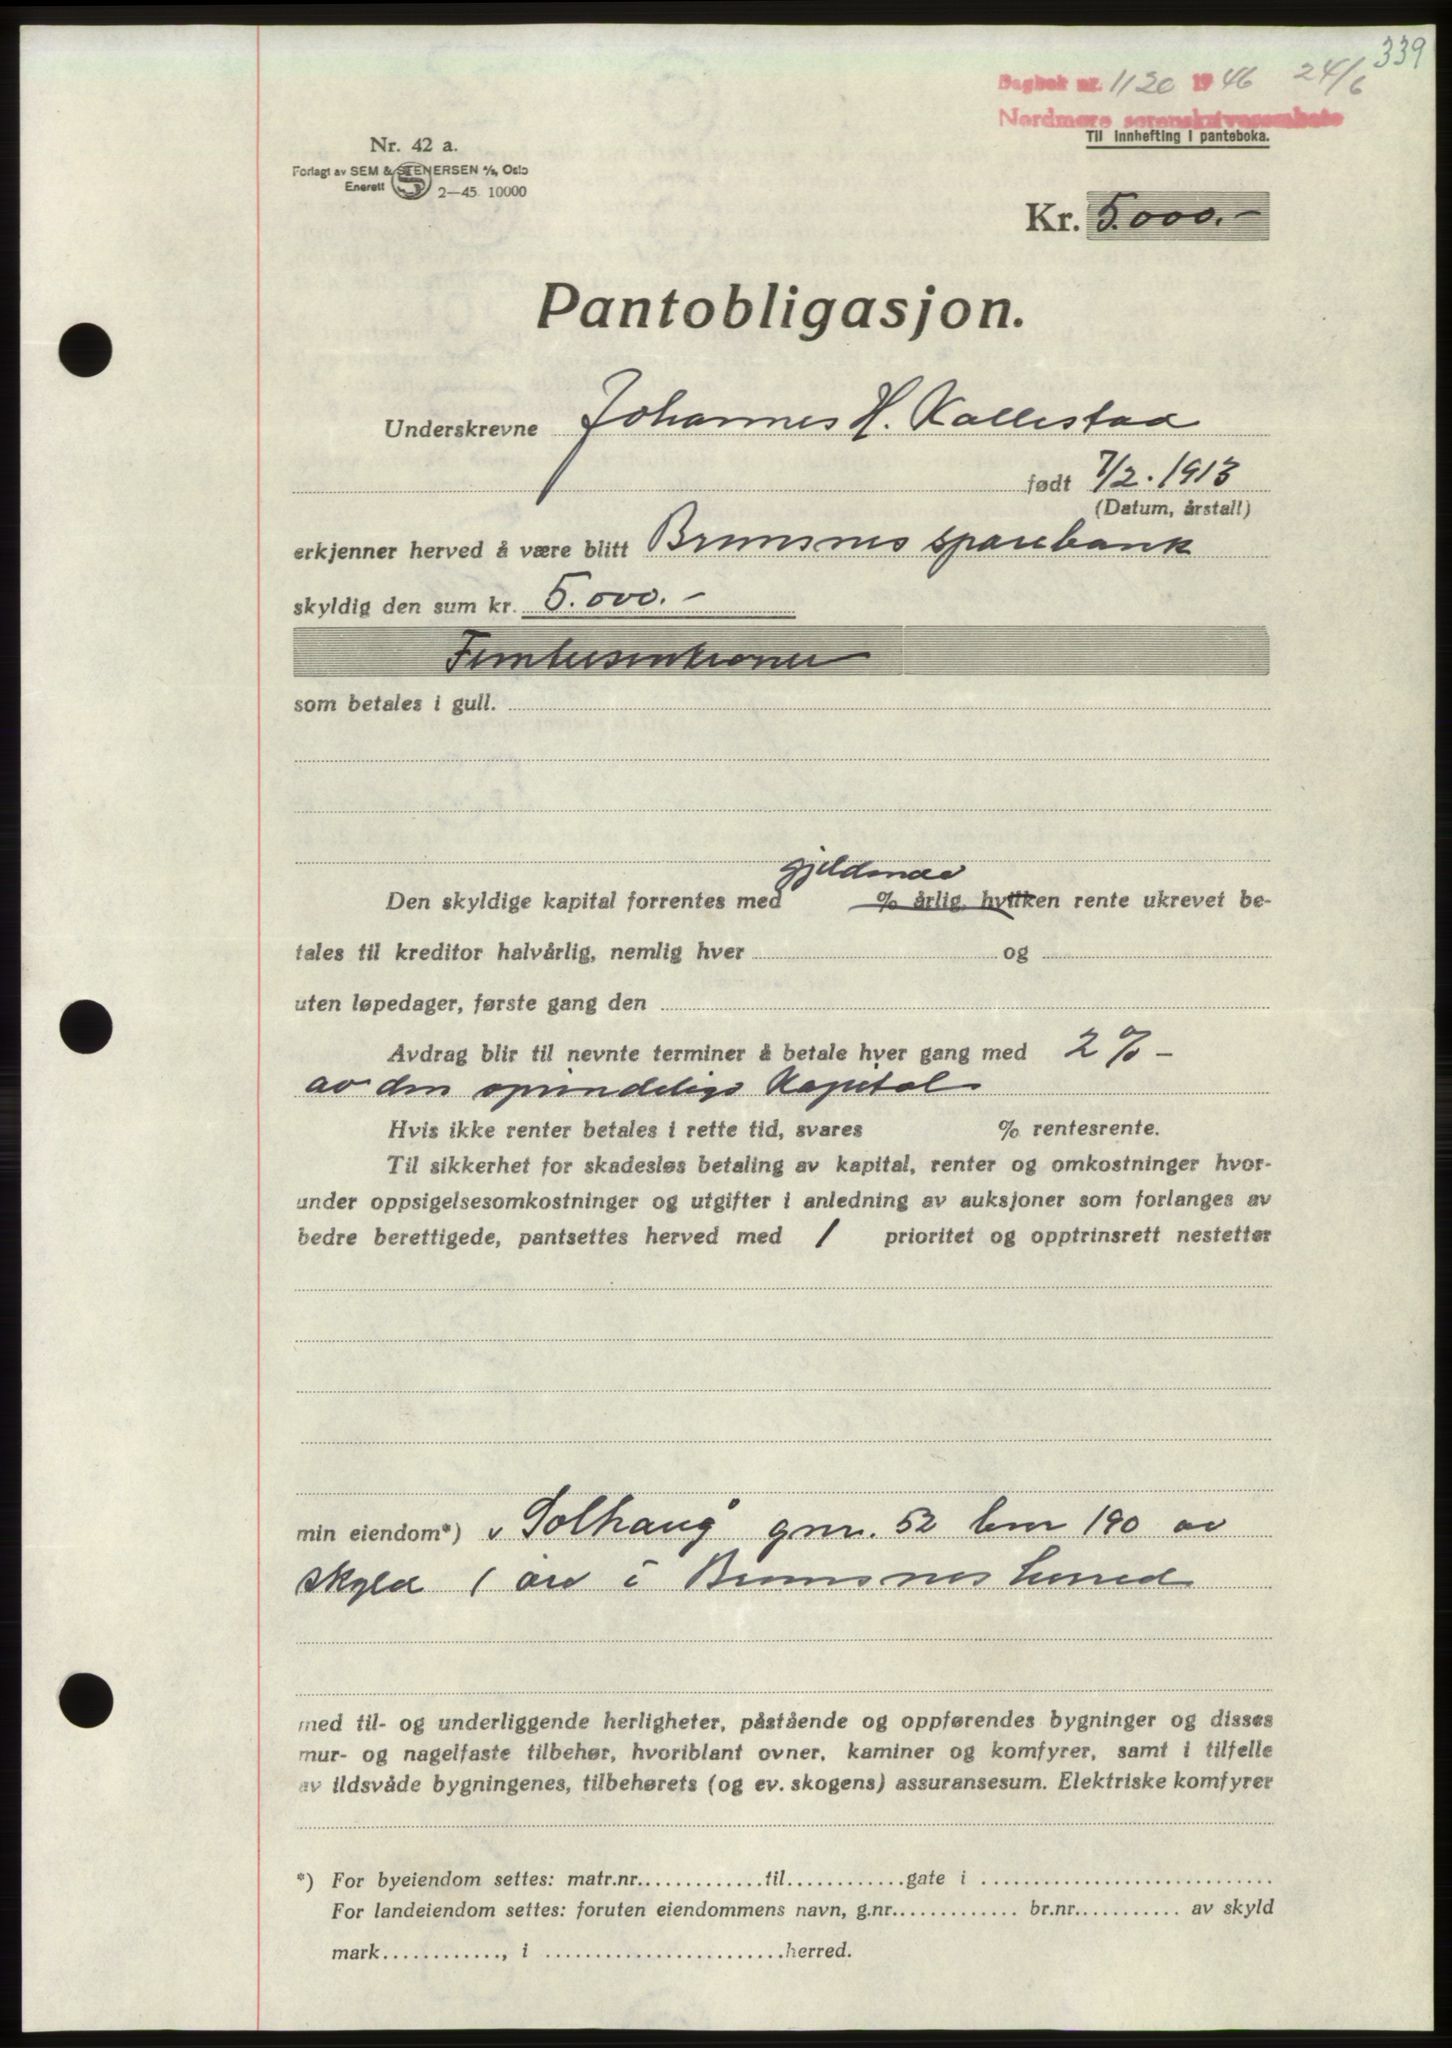 339
Dagbok nr. 1120 1946 24/6
Nordmøre sorenskriverembete
Til innhefting i panteboka.
Nr. 42 a.
Forlagt av SEM & STENERSEN A/S, Oslo
Enerett 2—45. 10000
Kr. 5.000.-
Pantobligasjon.
Underskrevne Johannes H. Kallestad
født 7/2. 1913
(Datum, årstall)
erkjenner herved å være blitt Bremsnes sparebank
skyldig den sum kr. 5.000.-
Femtusenkroner
som betales i gull.
gjeldende
Den skyldige kapital forrentes med % årlig, hvilken rente ukrevet be-
tales til kreditor halvårlig, nemlig hver og
uten løpedager, første gang den
Avdrag blir til nevnte terminer å betale hver gang med 2 % -
av den oprindelige Kapital
Hvis ikke renter betales i rette tid, svares % rentesrente.
Til sikkerhet for skadesløs betaling av kapital, renter og omkostninger hvor-
under oppsigelsesomkostninger og utgifter i anledning av auksjoner som forlanges av
bedre berettigede, pantsettes herved med 1 prioritet og opptrinsrett nestetter
min eiendom*) „Solhaug" gnr. 52 bnr 190 av
skyld 1 øre i Bremsnes herred
med til- og underliggende herligheter, påstående og oppførendes bygninger og disses
mur- og nagelfaste tilbehør, hvoriblant ovner, kaminer og komfyrer, samt i tilfelle
av ildsvåde bygningenes, tilbehørets (og ev. skogens) assuransesum. Elektriske komfyrer
*) For byeiendom settes: matr.nr. til gate i
For landeiendom settes: foruten eiendommens navn, g.nr. br.nr. av skyld
mark , i herred.